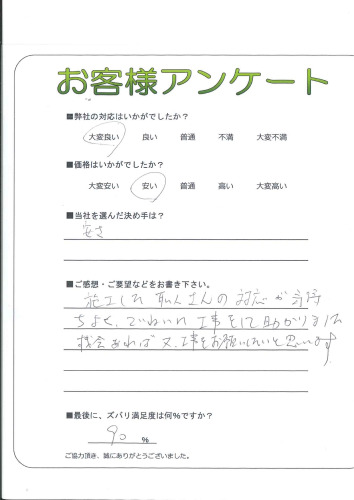 お客様アンケート
■弊社の対応はいかがでしたか？
大変良い 良い 普通 不満 大変不満
■価格はいかがでしたか？
大変安い 安い 普通 高い 大変高い
■当社を選んだ決め手は？
安さ
■ご感想・ご要望などをお書き下さい。
施工した さんの対応が気持
ちよく、ていねいな工事をして助かりました
機会あれば又、工事をお願いしたいと思います
■最後に、ズバリ満足度は何％ですか？
90 ％
ご協力頂き、誠にありがとうございました。